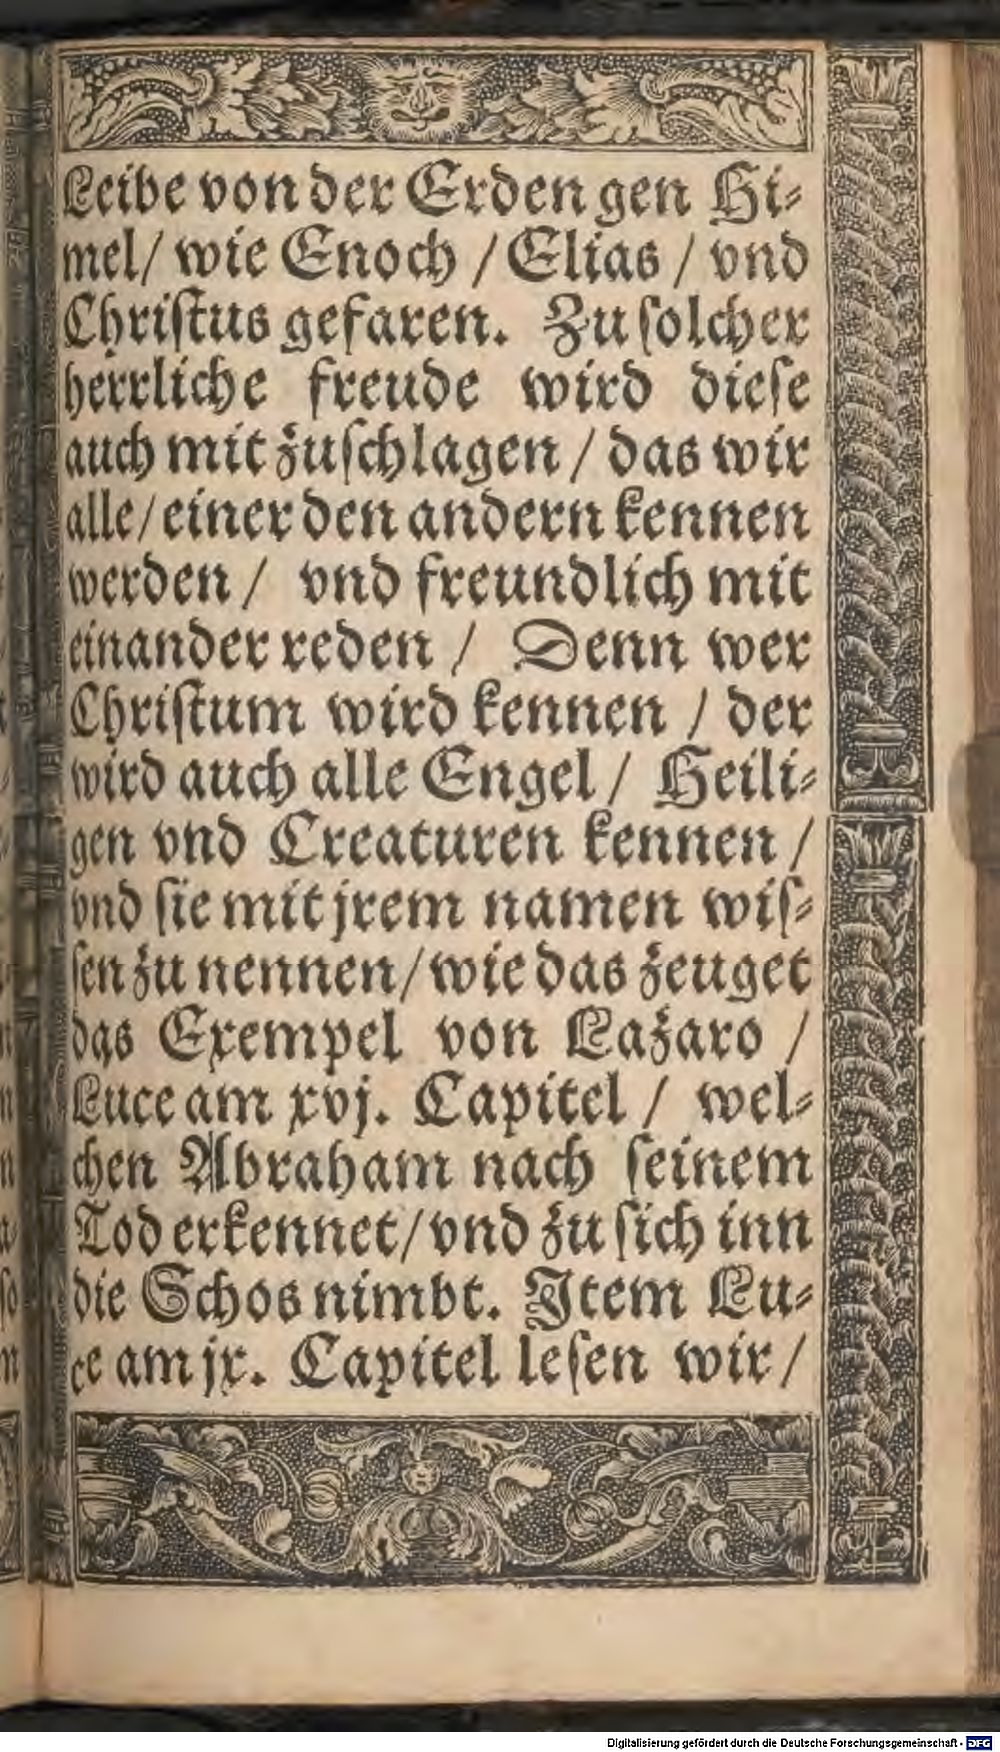 Leibe von der Erden gen Hi⸗
mel/ wie Enoch / Elias / vnd
Chriſtus gefaren. Zu ſolcher
herrliche freude wird dieſe
auch mit zuſchlagen / das wir
alle/ einer den andern kennen
werden / vnd freundlich mit
einander reden / Denn wer
Chriſtum wird kennen / der
wird auch alle Engel / Heili⸗
gen vnd Creaturen kennen /
vnd ſie mit jrem namen wiſ⸗
ſen zu nennen / wie das zeuget
das Exempel von Lazaro /
Luce am xvj. Capitel / wel⸗
chen Abraham nach ſeinem
Tod erkennet / vnd zu ſich inn
die Schos nimbt. Item Lu⸗
ce am jx. Capitel leſen wir /
Digitalisierung gefördert durch die Deutsche Forschungsgemeinschaft - DFG